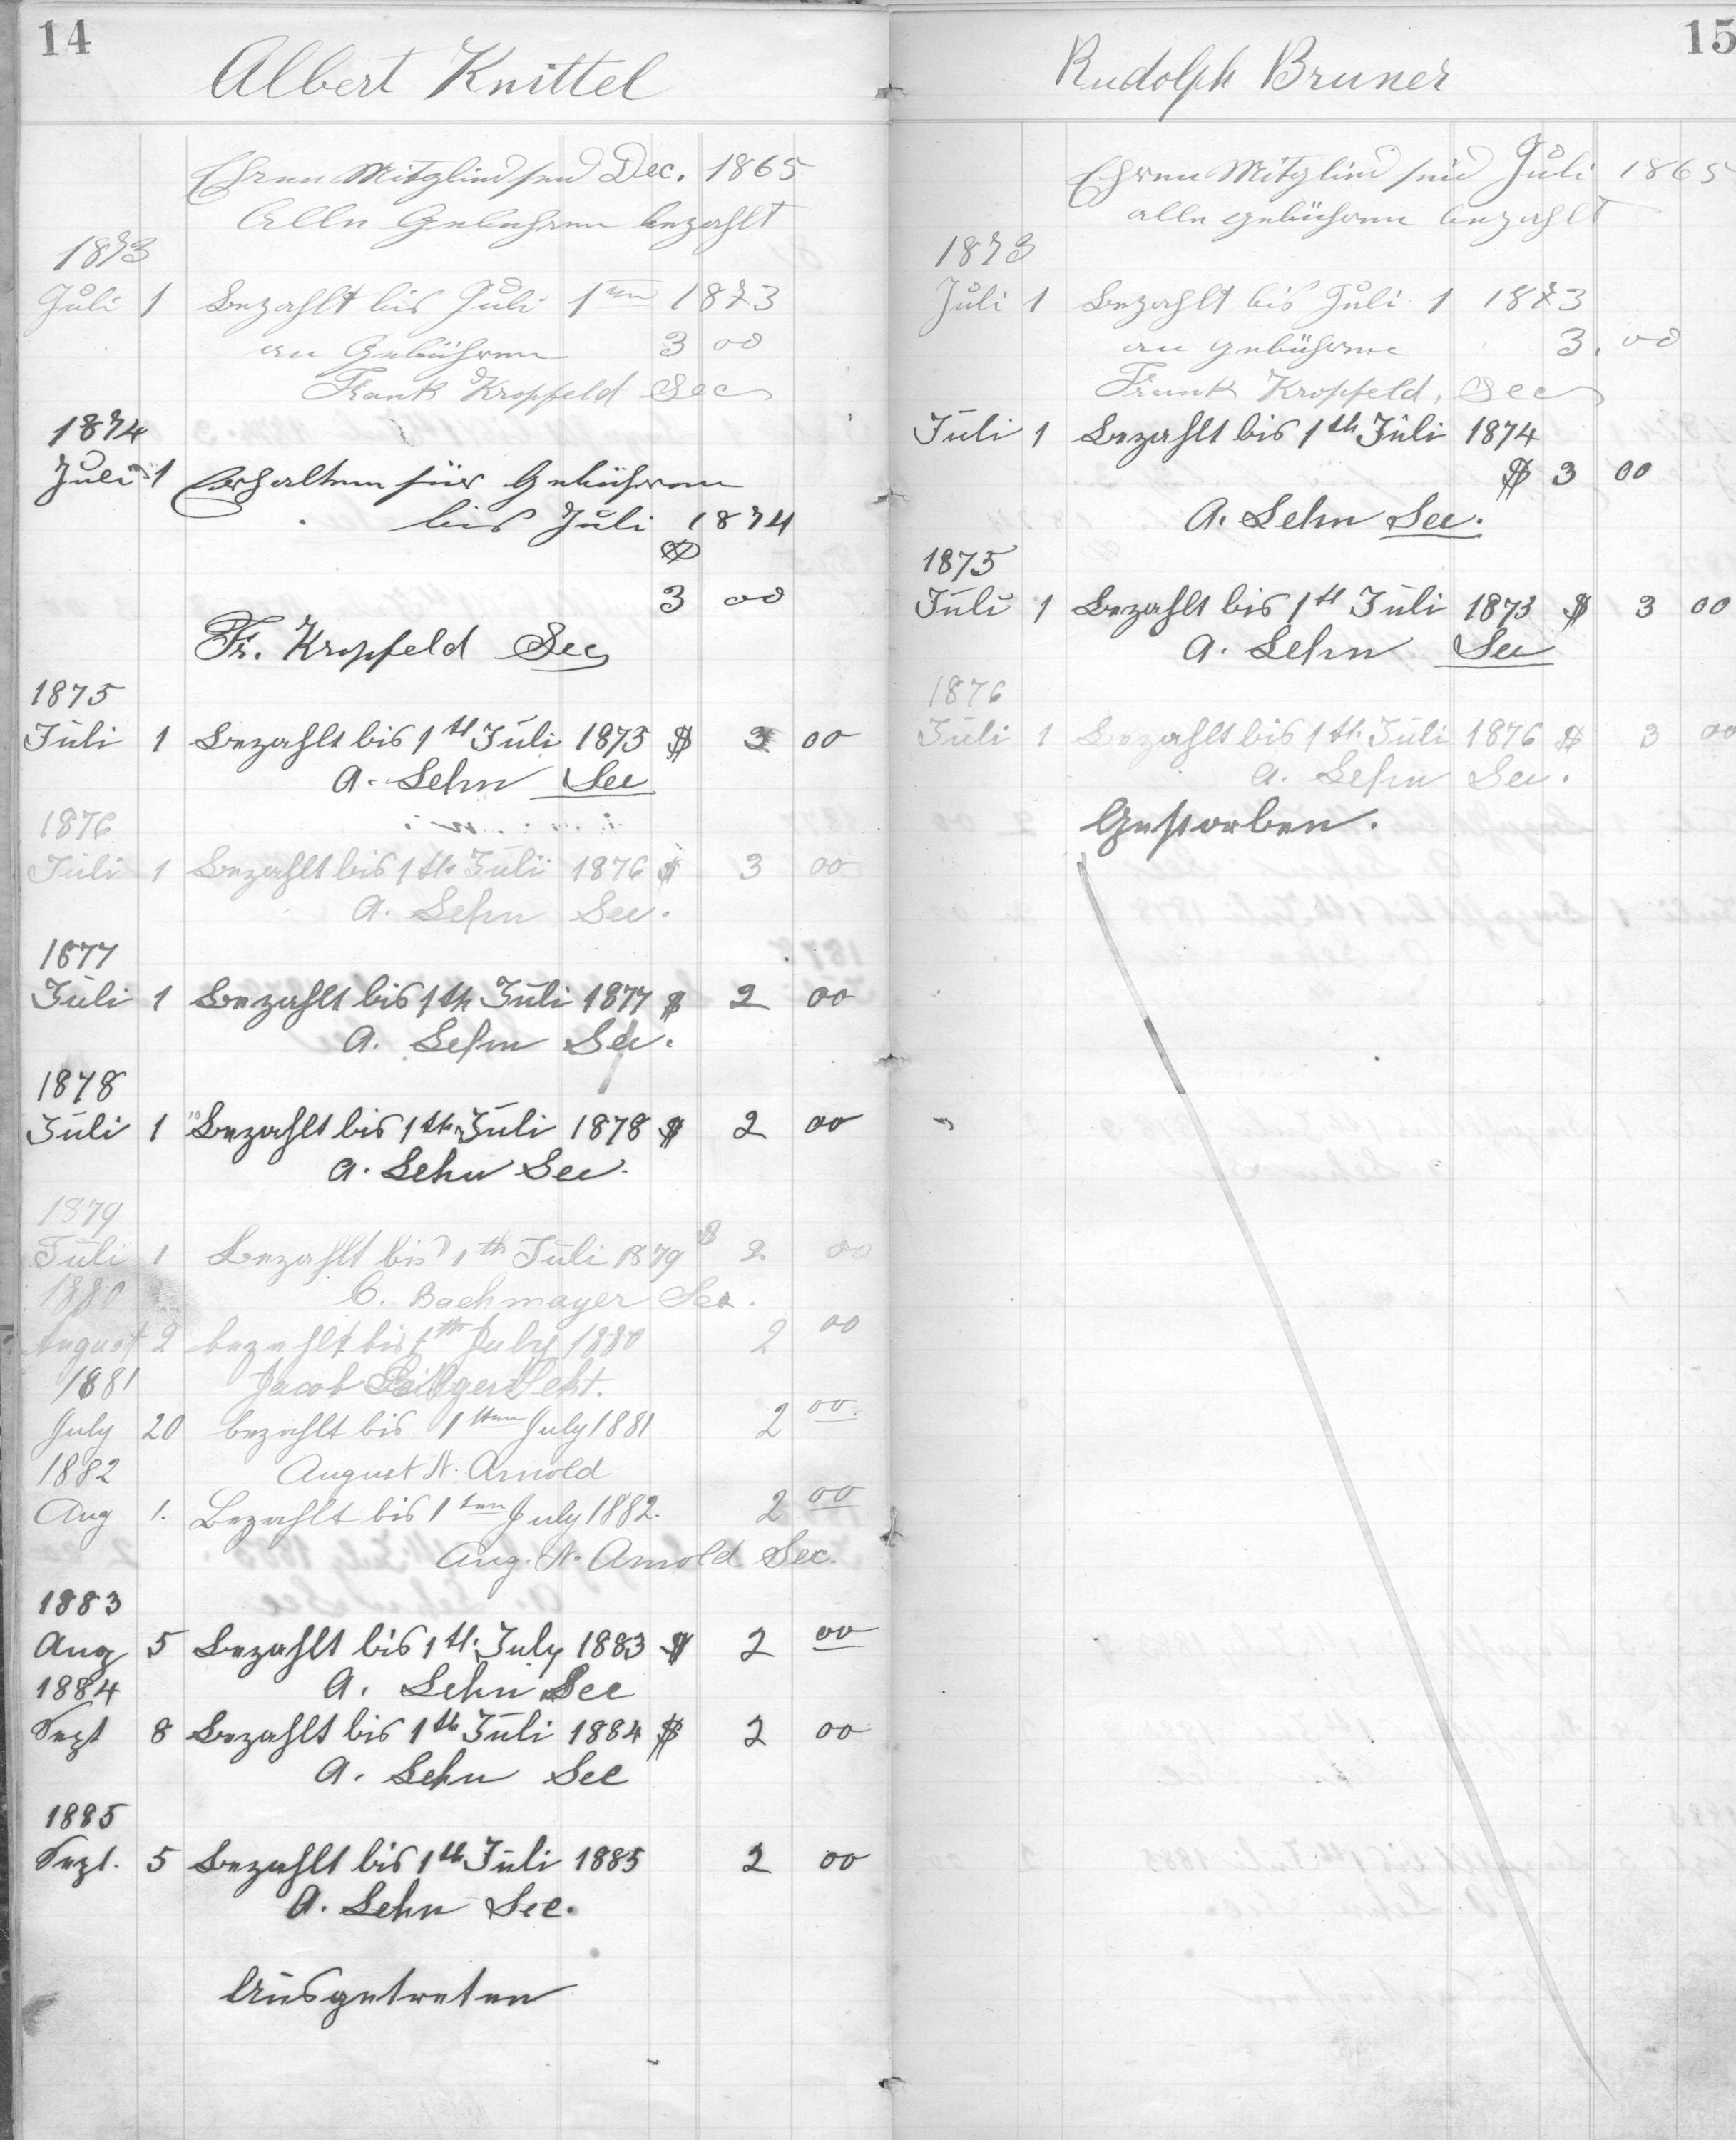 14
Albert Knittel
Ehren Mitglied seid Dec. 1865
Alle Gebuhren bezahlt
1873
Juli 1 Bezahlt bis Juli 1ten 1873
an Gebühren 3 00
Frank Kropfeld Sec
1874
Juli 1 Erhalten für Gebühren
bis Juli 1874
$
3 00
Fr. Kropfeld Sec
1875
Juli 1 Bezahlt bis 1th Juli 1875 $ 3 00
A. Lehn Sec
1876
Juli 1 Bezahlt bis 1th Juli 1876 $ 3 00
A. Lehn Sec.
1877
Juli 1 Bezahlt bis 1th Juli 1877 $ 2 00
A. Lehn Sec.
1878
Juli 1 Bezahlt bis 1th Juli 1878 $ 2 00
A. Lehn Sec.
1879
Juli 1 Bezahlt bis 1th Juli 1879 $ 2 00
1880 C. Bachmayer Sec.
August 2 bezahlt bis 1th July 1880 2 00
1881 Jacob
July 20 bezahlt bis 1sten July 1881 2 00
1882 August N. Arnold
Aug 1. Bezahlt bis 1ten July 1882. 2 00
Aug. N. Arnold Sec.
1883
Aug 5 Bezahlt bis 1th July 1883 $ 2 00
1884 A. Lehn Sec
Sept 8 Bezahlt bis 1th Juli 1884 $ 2 00
A. Lehn Sec
1885
Sept. 5 Bezahlt bis 1th Juli 1885 2 00
A. Lehn Sec.
Ausgetreten
15
Rudolph Bruner
Ehren Mitglied seid Juli 1865
alle gebühren bezahlt
1873
Juli 1 Bezahlt bis Juli 1 1873
an gebühren 3. 00
Frank Kropfeld, Sec
Juli 1 Bezahlt bis 1th Juli 1874
$ 3 00
A. Lehn Sec.
1875
Juli 1 Bezahlt bis 1th Juli 1875 $ 3 00
A. Lehn Sec
1876
Juli 1 Bezahlt bis 1th Juli 1876 $ 3 00
A. Lehn Sec.
Gestorben.